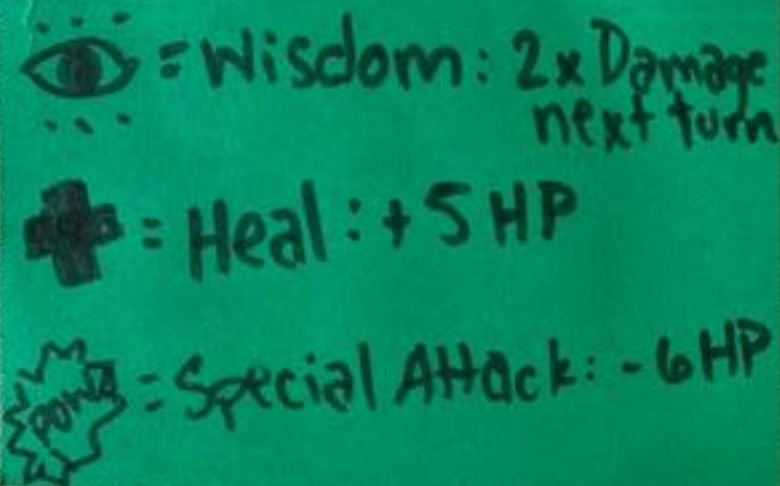 = Wisdom: 2x Damage
next turn
= Heal: +5 HP
POW = Special Attack: -6 HP